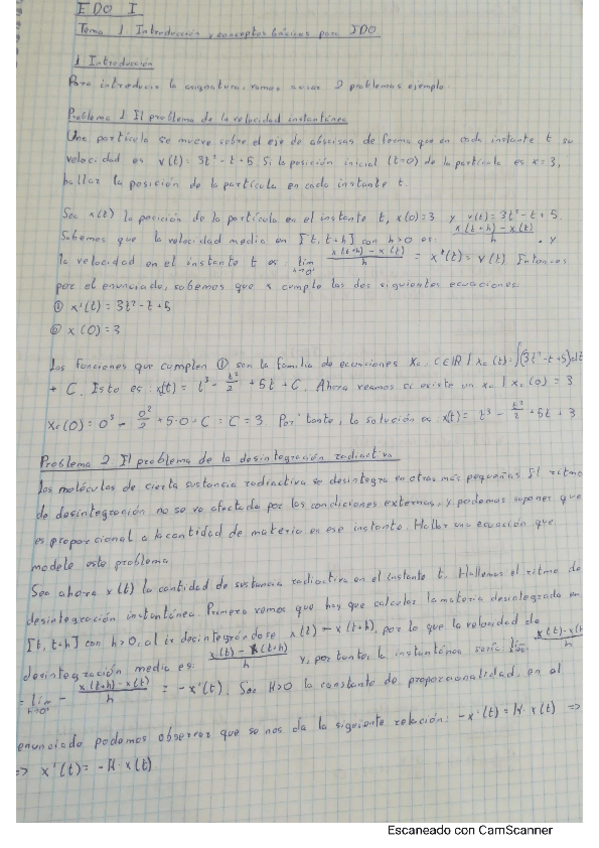 EDO I
Tema 1. Introducción y conceptos básicos para EDO
1. Introducción
Para introducir la asignatura, vamos a usar 2 problemas ejemplo.
Problema 1. El problema de la velocidad instantánea
Una partícula se mueve sobre el eje de abscisas de forma que en cada instante t su
velocidad es v(t) = 3t² - t + 5. Si la posición inicial (t=0) de la partícula es x = 3,
hallar la posición de la partícula en cada instante t.
Sea x(t) la posición de la partícula en el instante t, x(0) = 3 y v(t) = 3t² - t + 5.
Sabemos que la velocidad media en [t, t+h] con h>0 es: (x(t+h) - x(t))/h . y
la velocidad en el instante t es: lim h→0⁺ (x(t+h) - x(t))/h = x'(t) = v(t). Entonces
por el enunciado, sabemos que x cumple las dos siguientes ecuaciones:
① x'(t) = 3t² - t + 5
② x(0) = 3
Las funciones que cumplen ① son la familia de ecuaciones x_c, C∈ℝ / x_c(t) = ∫(3t² - t + 5)dt
+ C. Esto es: x(t) = t³ - t²/2 + 5t + C. Ahora veamos si existe un x_c / x_c(0) = 3
x_c(0) = 0³ - 0²/2 + 5·0 + C = C = 3. Por tanto, la solución es x(t) = t³ - t²/2 + 5t + 3
Problema 2. El problema de la desintegración radiactiva
Las moléculas de cierta sustancia radiactiva se desintegra en otras más pequeñas. El ritmo
de desintegración no se va afectado por las condiciones externas, y podemos suponer que
es proporcional a la cantidad de materia en ese instante. Hallar una ecuación que
modele este problema
Sea ahora x(t) la cantidad de sustancia radiactiva en el instante t. Hallemos el ritmo de
desintegración instantánea. Primero vemos que hay que calcular la materia desintegrada en
[t, t+h] con h>0, al ir desintegrándose x(t) - x(t+h), por lo que la velocidad de
desintegración media es: (x(t) - x(t+h))/h y, por tanto, la instantánea sería lim (x(t) - x(t+h))/h
= lim h→0⁺ - (x(t+h) - x(t))/h = -x'(t). Sea K>0 la constante de proporcionalidad, en el
enunciado podemos observar que se nos da la siguiente relación: -x'(t) = K·x(t) ⇒
⇒ x'(t) = -K·x(t)
Escaneado con CamScanner